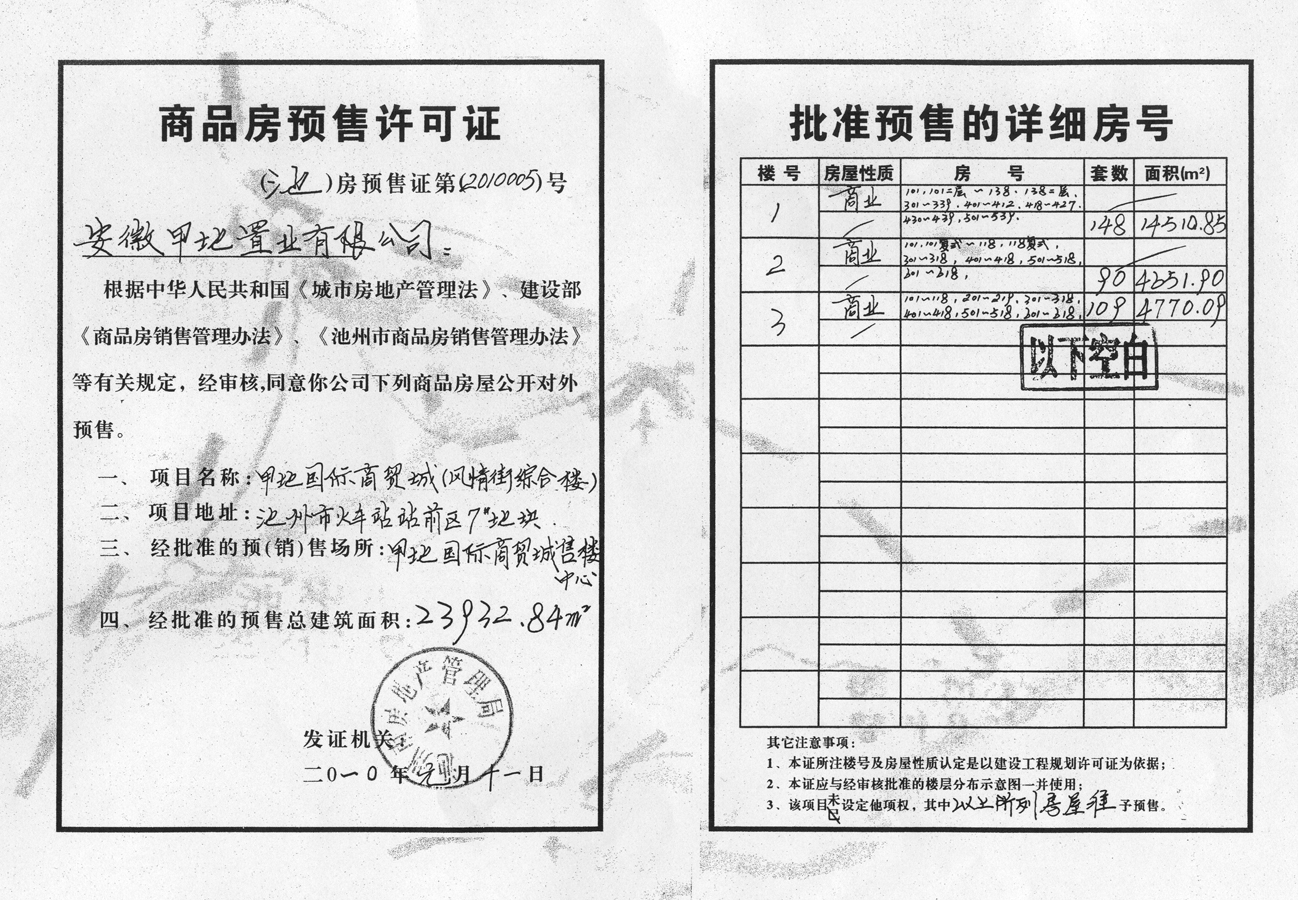 商品房预售许可证
(池)房预售证第(2010005)号
安徽甲地置业有限公司:
根据中华人民共和国《城市房地产管理法》、建设部
《商品房销售管理办法》、《池州市商品房销售管理办法》
等有关规定，经审核,同意你公司下列商品房屋公开对外
预售。
一、 项目名称:甲地国际商贸城(风情街综合楼)
二、 项目地址:池州市火车站站前区7#地块.
三、 经批准的预(销)售场所:甲地国际商贸城售楼
中心
四、 经批准的预售总建筑面积:23932.84m²
池州市房地产管理局
发证机关:
二0一0年元月十一日
批准预售的详细房号
楼号 房屋性质 房号 套数 面积(m²)
1 商业 101,101二层~138、138二层、
301~339、401~412、418~427、
430~439,501~539. 148 14510.85
2 商业 101,101复式~118,118复式,
301~318, 401~418, 501~518,
90 4251.90
3 商业 101~118, 201~219, 301~318,
109 4770.09
以下空白
其它注意事项:
1、本证所注楼号及房屋性质认定是以建设工程规划许可证为依据;
2、本证应与经审核批准的楼层分布示意图一并使用;
3、该项目未已设定他项权，其中以上所列房屋准予预售。